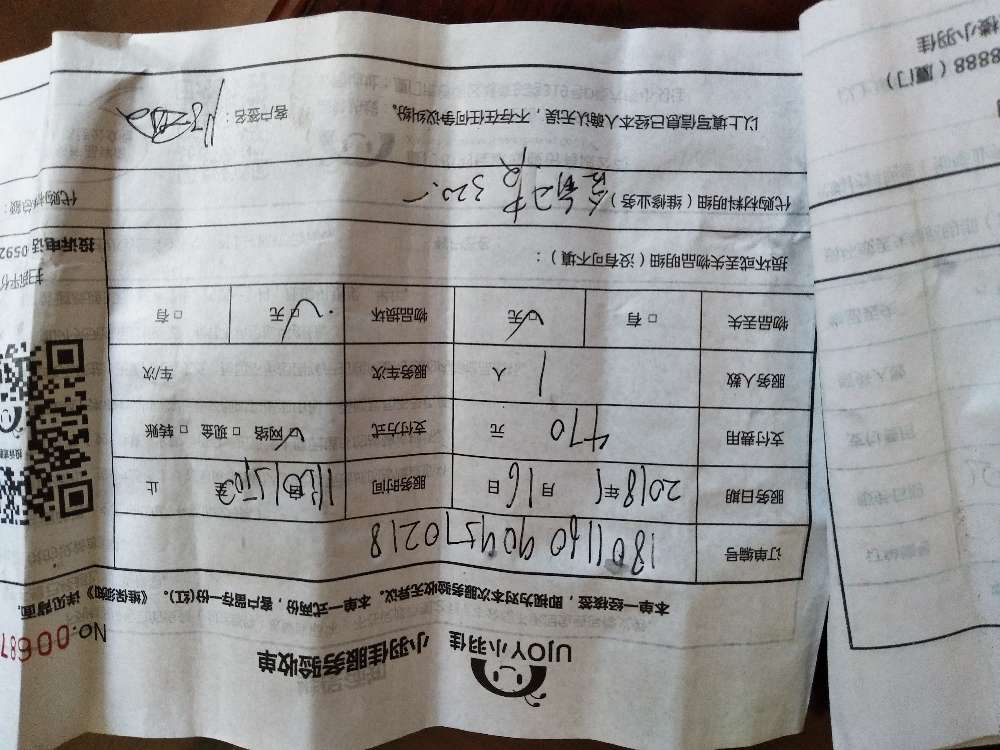 UJOY小羽佳
小羽佳服务验收单
NO:00687
本单一经核签，即视为对本次服务验收无异议。本单一式两份，客户留存一份(红)。《维保须知》详见背面。
订单编号
服务日期 2018年1月16日 服务时间 至 止
支付费用 470 元 支付方式 ☑网络 □现金 □转账
服务人数 1 人 服务车次 车/次
物品丢失 □有 ☑无 物品损坏 ☑无 □有
损坏或丢失物品明细（没有可不填）：
投诉电话 0592
代购材料明细（维修业务） 320.
代购材料总额：
以上填写信息已经本人确认无误，不存在任何争议纠纷。 客户签名：
8888（厦门）
楼小羽佳